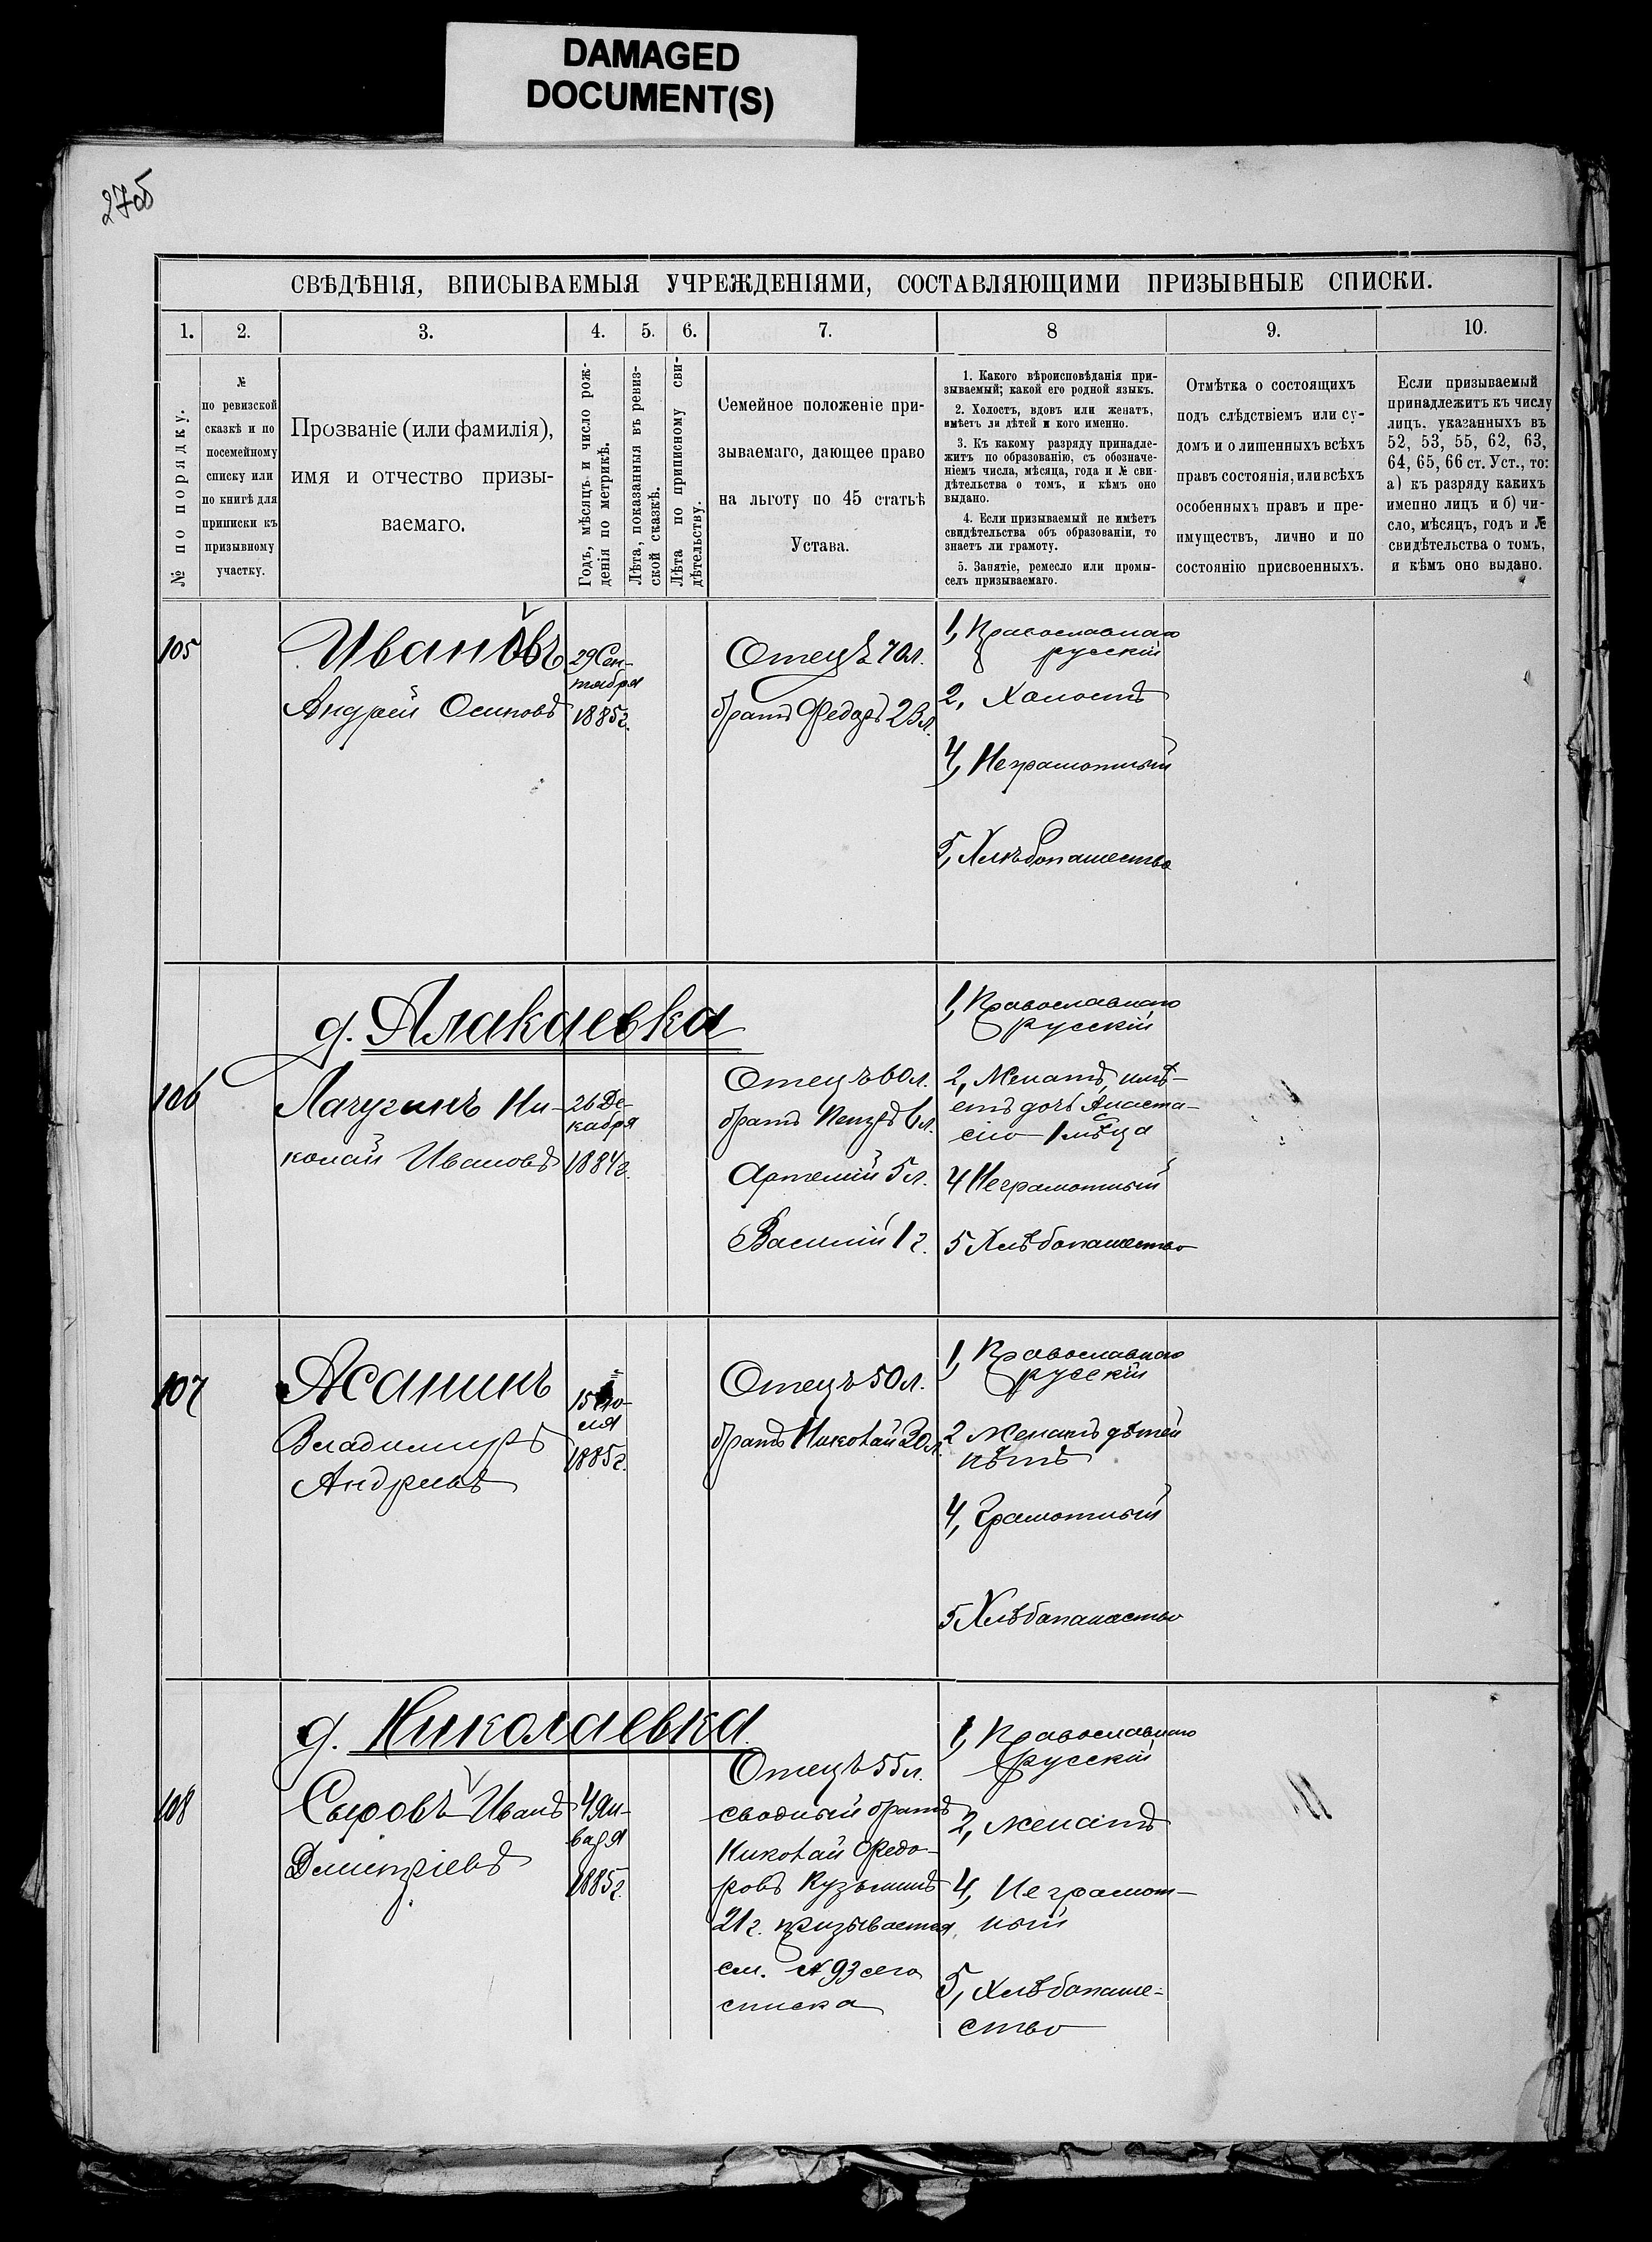 DAMAGED
DOCUMENT(S)
27об
СВѢДѢНІЯ, ВПИСЫВАЕМЫЯ УЧРЕЖДЕНІЯМИ, СОСТАВЛЯЮЩИМИ ПРИЗЫВНЫЕ СПИСКИ.
1. 2. 3. 4. 5. 6. 7. 8 9. 10.
№ по порядку.
№
по ревизской
сказкѣ и по
посемейному
списку или
по книгѣ для
приписки къ
призывному
участку.
Прозваніе (или фамилія),
имя и отчество призы-
ваемаго.
Годъ, мѣсяцъ и число рож-
денія по метрикѣ.
Лѣта, показанныя въ ревиз-
ской сказкѣ.
Лѣта по приписному сви-
дѣтельству.
Семейное положеніе при-
зываемаго, дающее право
на льготу по 45 статьѣ
Устава.
1. Какого вѣроисповѣданія при-
зываемый; какой его родной языкъ.
2. Холостъ, вдовъ или женатъ,
имѣетъ ли дѣтей и кого именно.
3. Къ какому разряду принадле-
житъ по образованію, съ обозначе-
ніемъ числа, мѣсяца, года и № сви-
дѣтельства о томъ, и кѣмъ оно
выдано.
4. Если призываемый не имѣетъ
свидѣтельства объ образованіи, то
знаетъ ли грамоту.
5. Занятіе, ремесло или промы-
селъ призываемаго.
Отмѣтка о состоящихъ
подъ слѣдствіемъ или су-
домъ и о лишенныхъ всѣхъ
правъ состоянія, или всѣхъ
особенныхъ правъ и пре-
имуществъ, лично и по
состоянію присвоенныхъ.
Если призываемый
принадлежитъ къ числу
лицъ, указанныхъ въ
52, 53, 55, 62, 63,
64, 65, 66 ст. Уст., то:
а) къ разряду какихъ
именно лицъ и б) чи-
сло, мѣсяцъ, годъ и №
свидѣтельства о томъ,
и кѣмъ оно выдано.
105
Ивановъ
Андрей Осиповъ
29 Сен-
тября
1885г.
Отецъ 70л.
братъ Федоръ 23л.
1, Православнаго
русскій
2, Холостъ
4, Неграмотный
5, Хлѣбопашество
д. Алакаевка
106
Лачугинъ Ни-
колай Ивановъ
26 Де-
кабря
1884г.
Отецъ 60л.
братъ Петръ 6л.
Артемій 5л.
Василій 1г.
1, Православнаго
русскій
2, Женатъ, имѣ-
етъ дочь Анаста-
сію 1 мѣсяца
4 Неграмотный
5 Хлѣбопашество
107
Асанинъ
Владимиръ
Андреевъ
15 Ію-
ля
1885г.
Отецъ 50л.
братъ Николай 20л.
1, Православнаго
русскій
2 Женатъ дѣтей
нѣтъ
4, Грамотный
5 Хлѣбапашество
д. Николаевка.
108
Сыровъ Иванъ
Дмитріевъ
4 Ян-
варя
1885г.
Отецъ 55л.
сводный братъ
Николай Федо-
ровъ Кузьминъ
21г. призывается,
см. № 93 сего
списка
1, Православнаго
русскій
2, женатъ
4, Неграмот-
ный
5, Хлѣбопаше-
ство